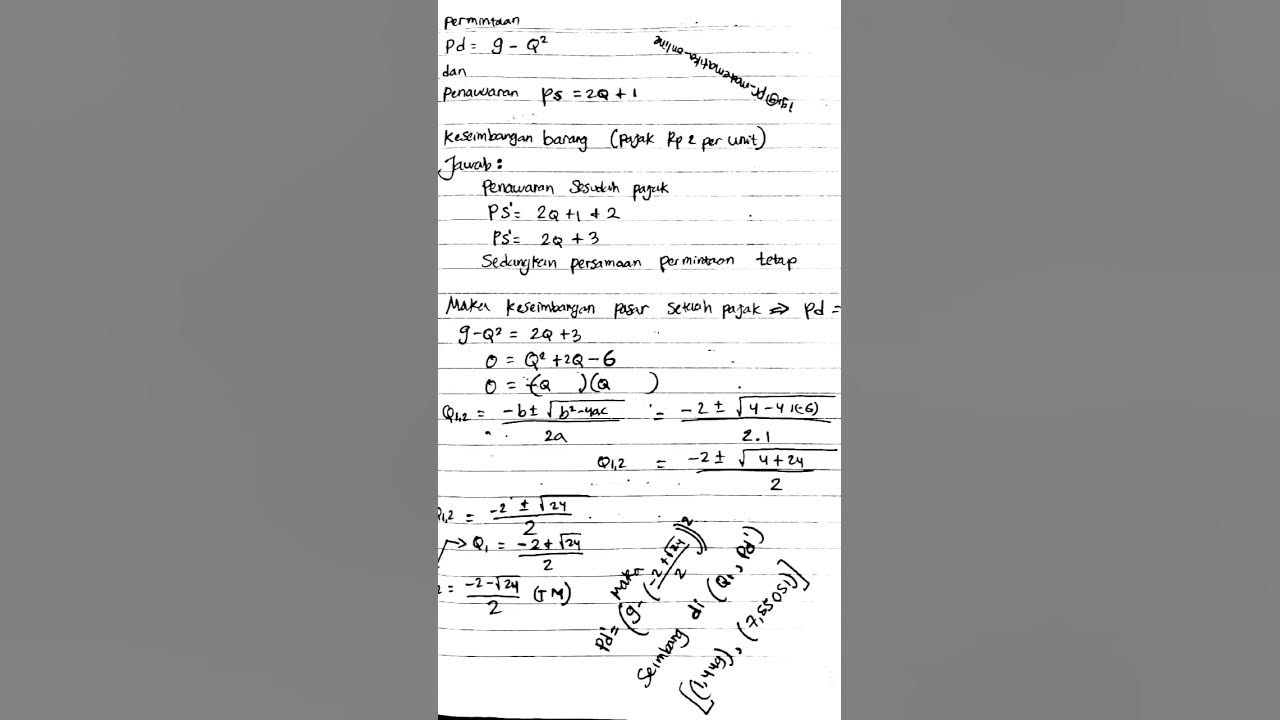 Permintaan
Pd = 9 - Q²
dan
Penawaran Ps = 2Q + 1
ig:@pc-matematika-online
Keseimbangan barang (pajak Rp 2 per unit)
Jawab:
Penawaran Sesudah pajak
Ps' = 2Q + 1 + 2
Ps' = 2Q + 3
Sedangkan persamaan permintaan tetap
Maka keseimbangan pasar setelah pajak ⇒ Pd =
9 - Q² = 2Q + 3
0 = Q² + 2Q - 6
0 = (Q )(Q )
Q1,2 = (-b ± √(b² - 4ac))/2a = (-2 ± √(4 - 4 1(-6)))/2.1
Q1,2 = (-2 ± √(4 + 24))/2
Q1,2 = (-2 ± √24)/2
→ Q1 = (-2 + √24)/2
2 = (-2 - √24)/2 (TM)
Maka
Pd' = (9 - ((-2 + √24)/2))²
Seimbang di (Q1, Pd')
[(1,449), (7,55051)]